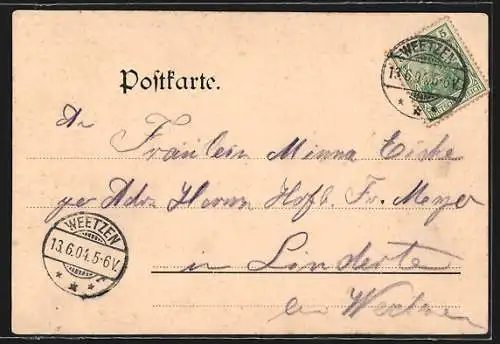 5
WEETZEN
13.6.04.5-6V.
Postkarte.
An
Fräulein Minna
per Adr. Herrn Hofb. Fr. Meyer
WEETZEN
13.6.04.5-6V.
in Linderte